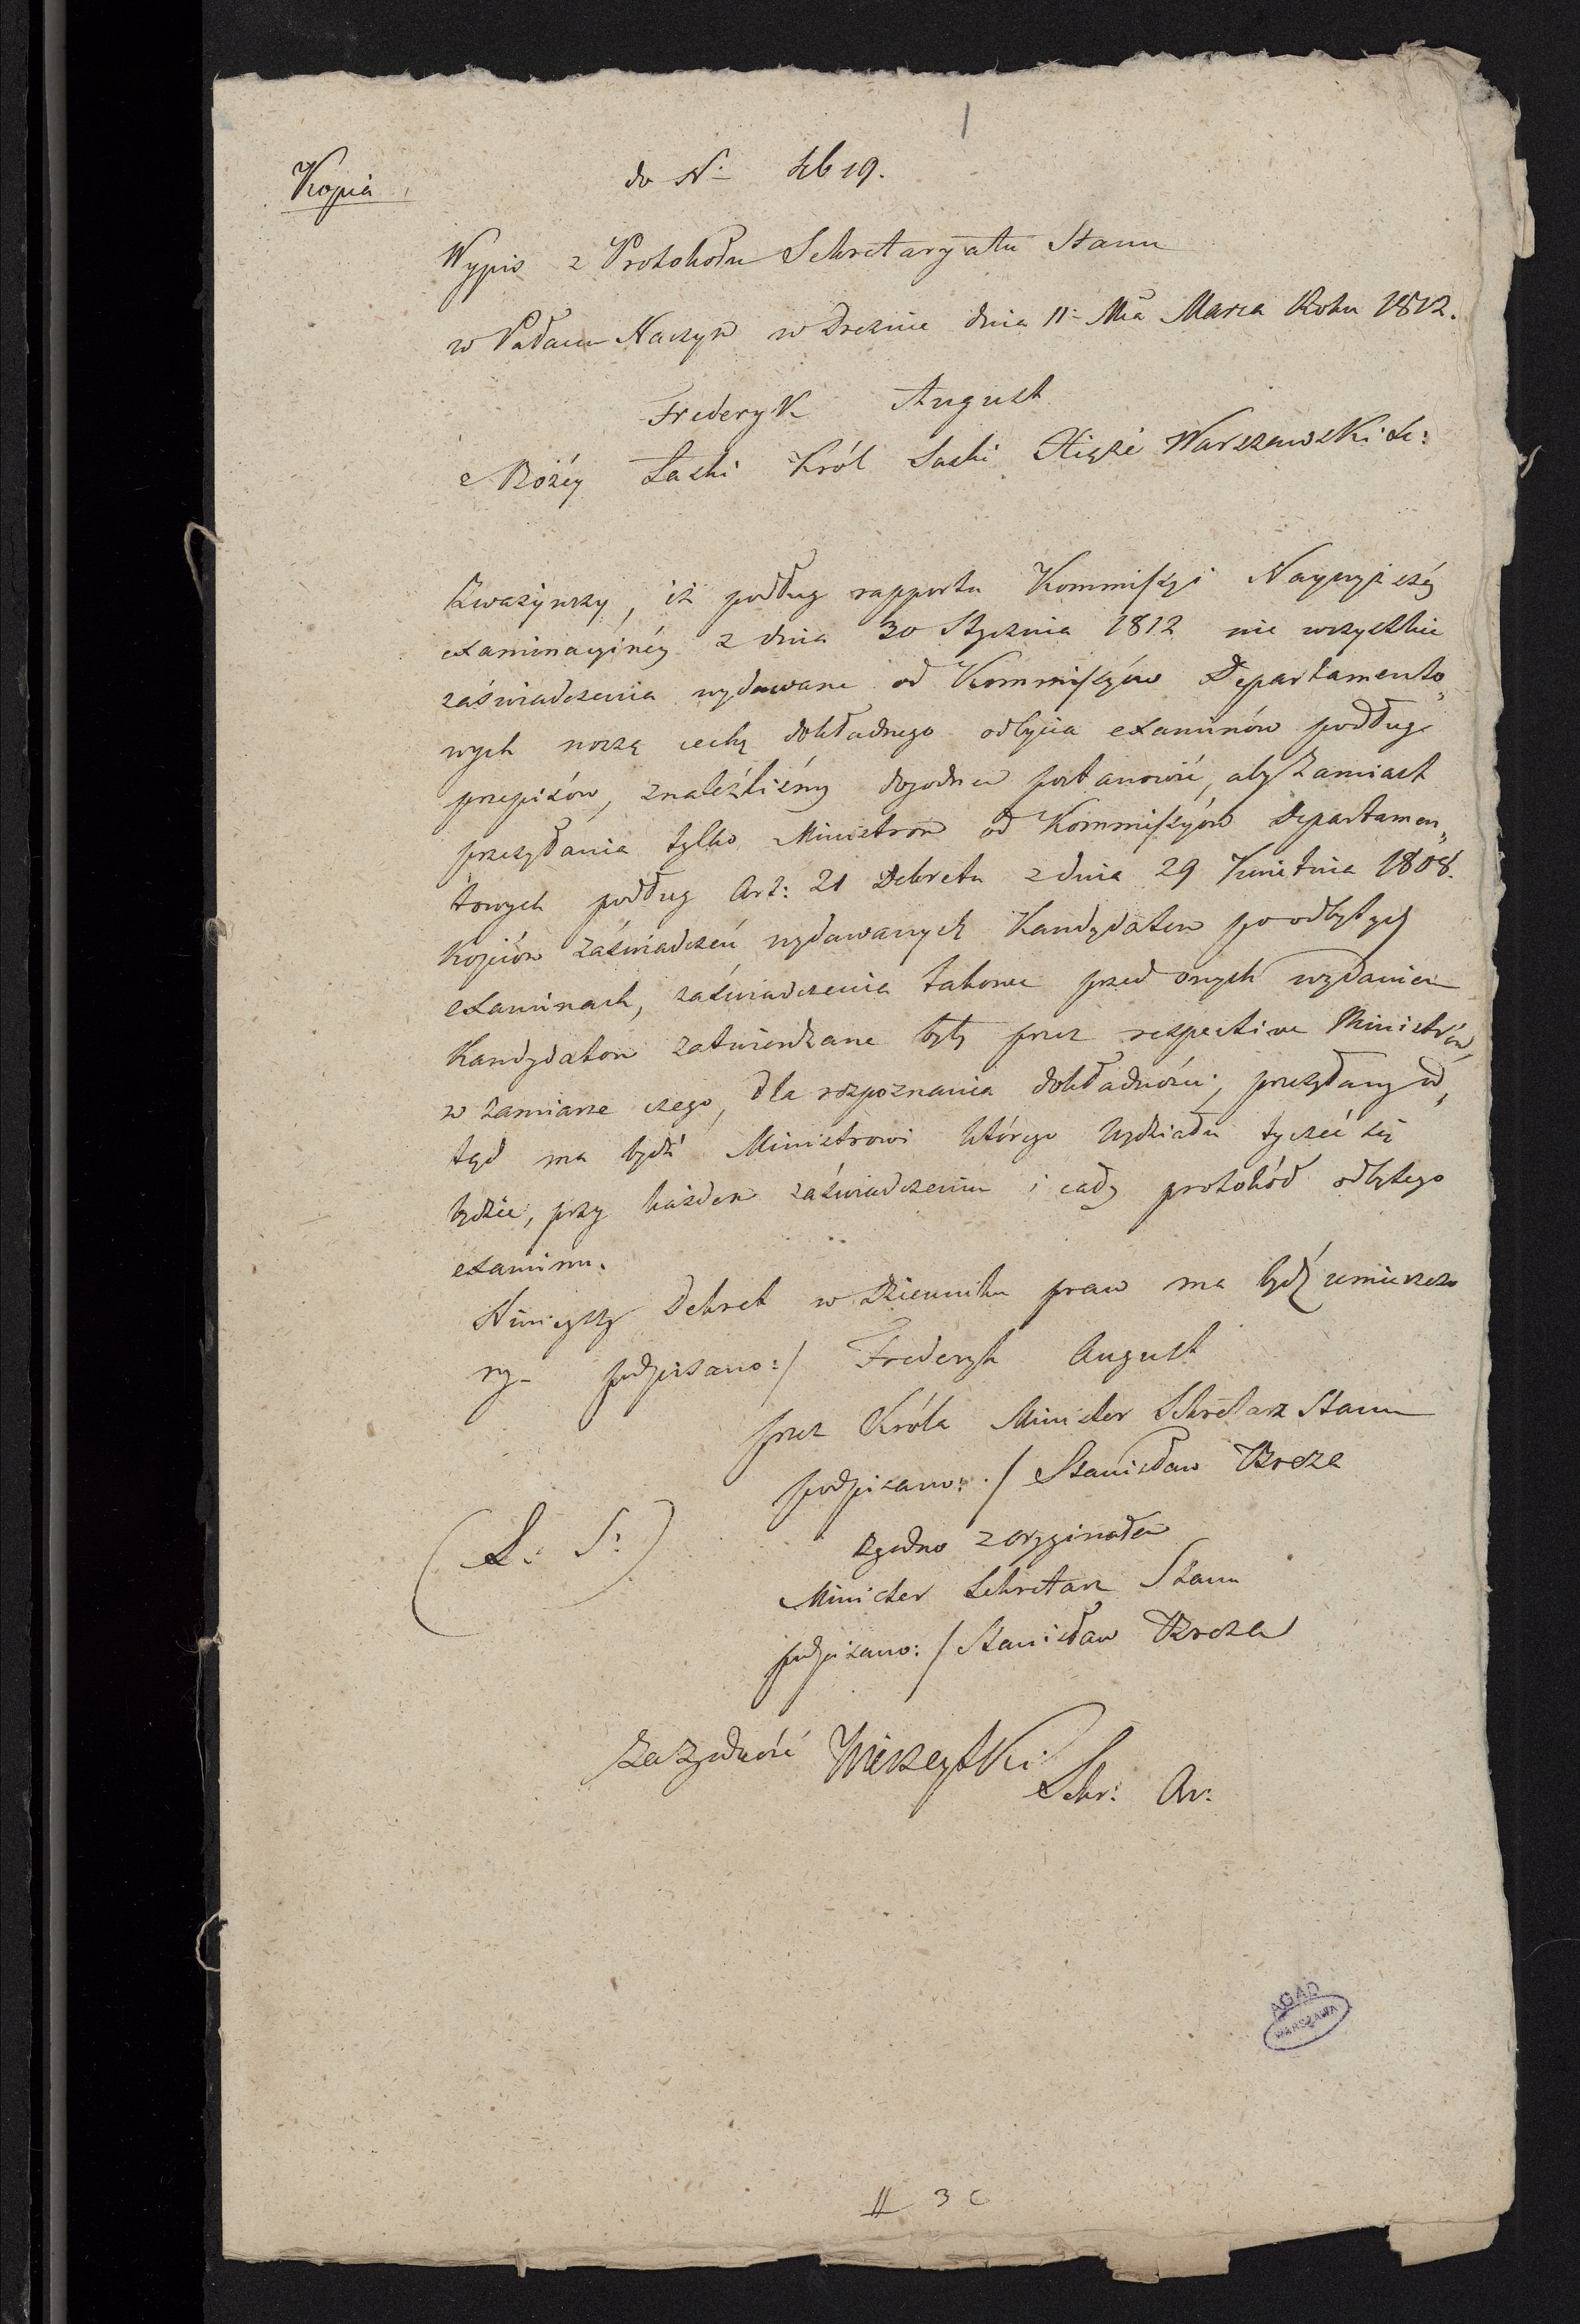 1
Kopia
do N: 4619.
Wypis z Protokołu Sekretaryatu Stanu
w Pałacu Naszym w Dreznie dnia 11: Mca Marca Roku 1812.
Fryderyk August
z Bożéy Łaski Król Saski Xiąże Warszawski &c:
Zważywszy, iż podług rapportu Kommissyi Naywyższéy
examinacyinéy z dnia 30 Stycznia 1812 nie wszystkie
zaświadczenia wydawane od Kommissyów Departamento„
wych noszą cechę dokładnego odbycia examinów podług
przepisów, znaleźliśmy dogodnem postanowić, aby zamiast
przesyłania tylko Ministrom od Kommissyów Departamen„
towych podług Art: 21 Dekretu z dnia 29 Kwietnia 1808.
Kopiów zaświadczeń wydawanych Kandydatom po odbytych
examinach, zaświadczenia takowe przed onych wydaniem
Kandydatom zatwierdzane były przez respective Ministrów,
w zamiarze czego, dla rozpoznania dokładności, przesyłany od„
tąd ma bydź Ministrowi którego Wydziału tyczeć się
będzie, przy każdem zaświadczeniu i cały protokół odbytego
examinu.
Ninieyszy Dekret w Dzienniku praw ma bydź umieszczo
ny. podpisano:/ Frederyk August
przez Króla Minister Sekretarz Stanu
podpisano: ./ Stanisław Breza
(L: S:)
zgodno z oryginałem
Minister Sekretarz Stanu
podpisano: / Stanisław Breza
Za zgodność
Sekr: Ar:
AGAD
WARSZAWA
11 3 c